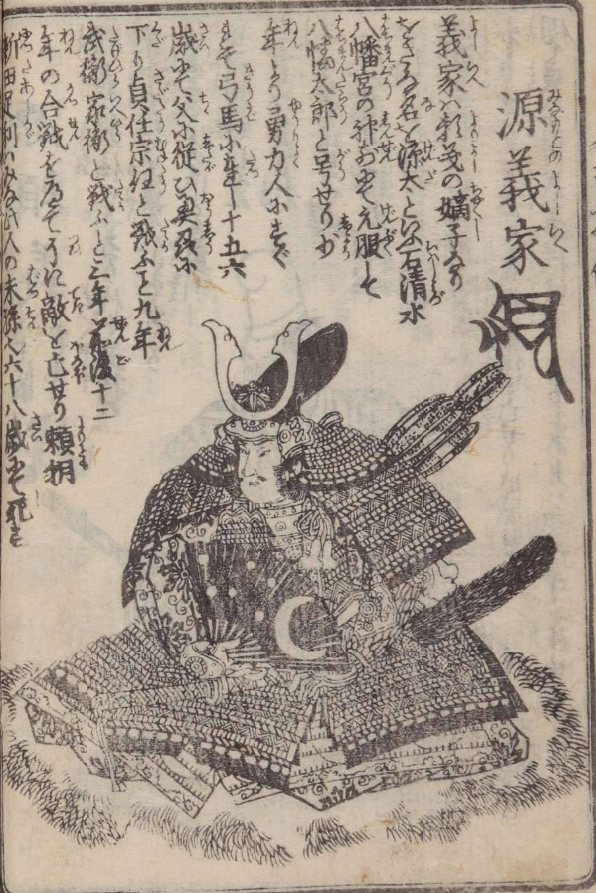 源義家
みなもとのよしいへ
義家ハ頼義の嫡子なり
をさな名を源太といふ石清水
八幡宮の神前にて元服して
八幡太郎と号せり少
年より勇力人にすぐ
れて弓馬に達し十五六
歳にて父に従ひ奥羽に
下り貞任宗任と戦ふこと九年
武衡家衡と戦ふこと三年前後十二
年の合戦を為てつひに敵を亡せり頼朝
新田足利ハみな此人の末孫也六十八歳にて死す